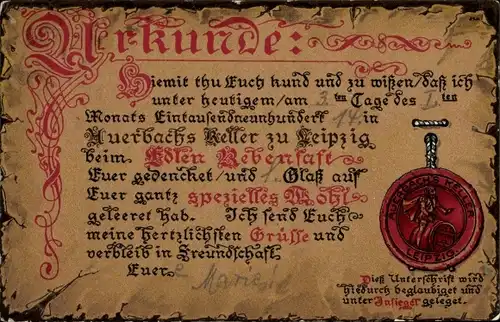 Urkunde:
Hiemit thu Euch kund und zu wißen/daß ich
unter heutigem/am 3. ten Tage des I. ten
Monats Eintausendneunhundert 14. in
Auerbachs Keller zu Leipzig
beim Edlen Rebensaft
Euer gedencket/und 1. Glaß auf
Euer gantz spezielles Wohl
geleeret hab. Ich send Euch
meine hertzlichsten Grüsse und
verbleib in Freundschaft
Euer
AUERBACHS KELLER
LEIPZIG
Dieß Unterschrift wird
hiedurch beglaubiget und
unter Insiegel geleget.